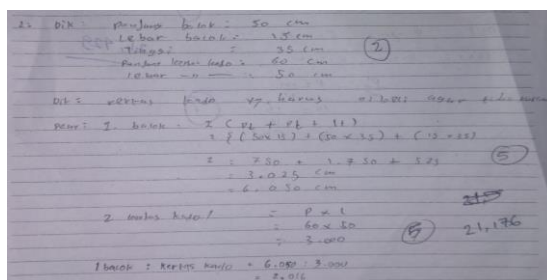 2. Dik : Panjang balok : 50 cm
Lebar balok : 15 cm
Tinggi : 35 cm
Panjang kertas kado : 60 cm
lebar -"- : 50 cm
2
Dit : kertas kado yg harus
1. balok = 2 (pl + pt + lt)
2 { (50 x 15) + (50 x 35) + (15 x 35)
2 : 750 + 1.750 + 525
= 3.025 cm
= 6.050 cm
5
2 kado / = P x l
= 60 x 50
= 3.000
5
21,176
1 balok : kertas kado = 6.050 : 3.000
= 2.016